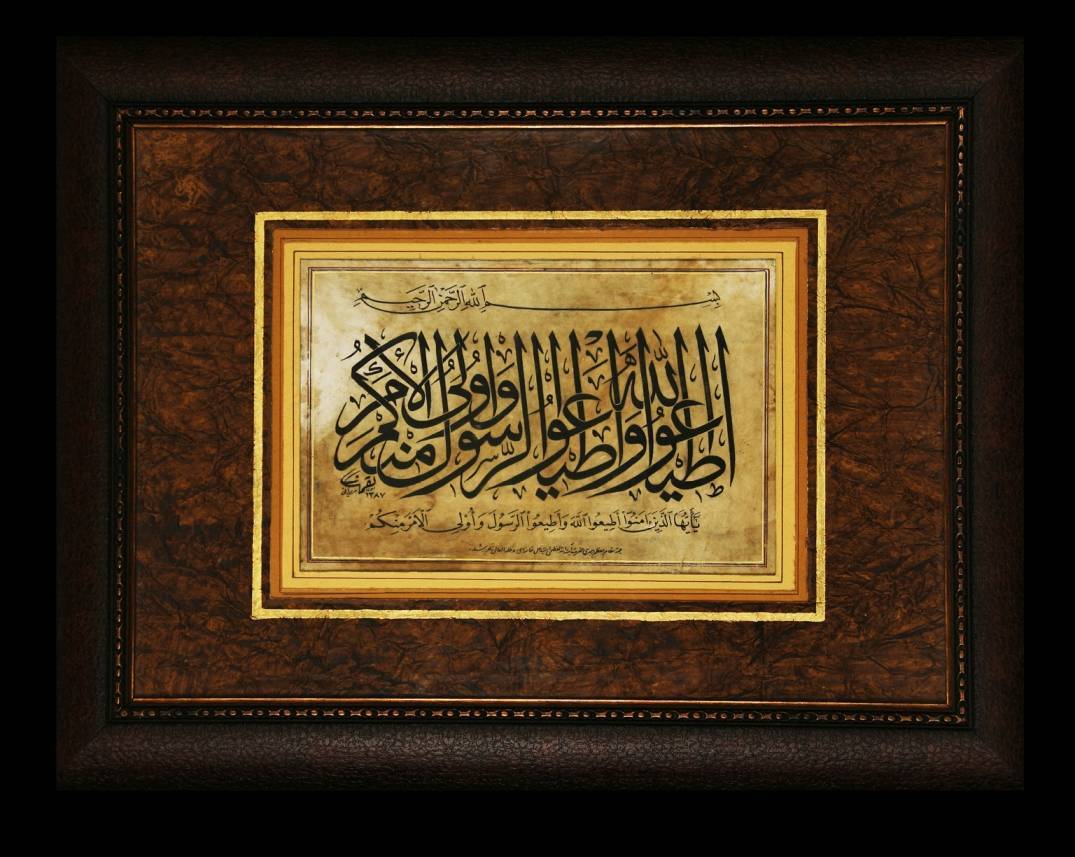 بِسْمِ ٱللَّهِ ٱلرَّحْمَٰنِ ٱلرَّحِيمِ
اطیعوا الله واطیعوا الرسول واولی الامر منکم
۱۳۸۷
يَٰٓأَيُّهَا ٱلَّذِينَ ءَامَنُوٓا۟ أَطِيعُوا۟ ٱللَّهَ وَأَطِيعُوا۟ ٱلرَّسُولَ وَأُو۟لِى ٱلْأَمْرِ مِنكُمْ